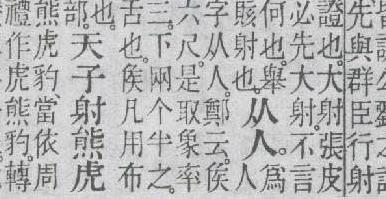 先與群臣行射
證也。大射張皮
必先大射。不言
何也。舉
賅射也。
从人。
為
人
字从人。鄭云。侯
六尺。是取象率
三。下兩个半之。
舌也。侯凡用布
也。
部
天子射熊虎
熊虎豹。當依周
禮作虎熊豹。轉